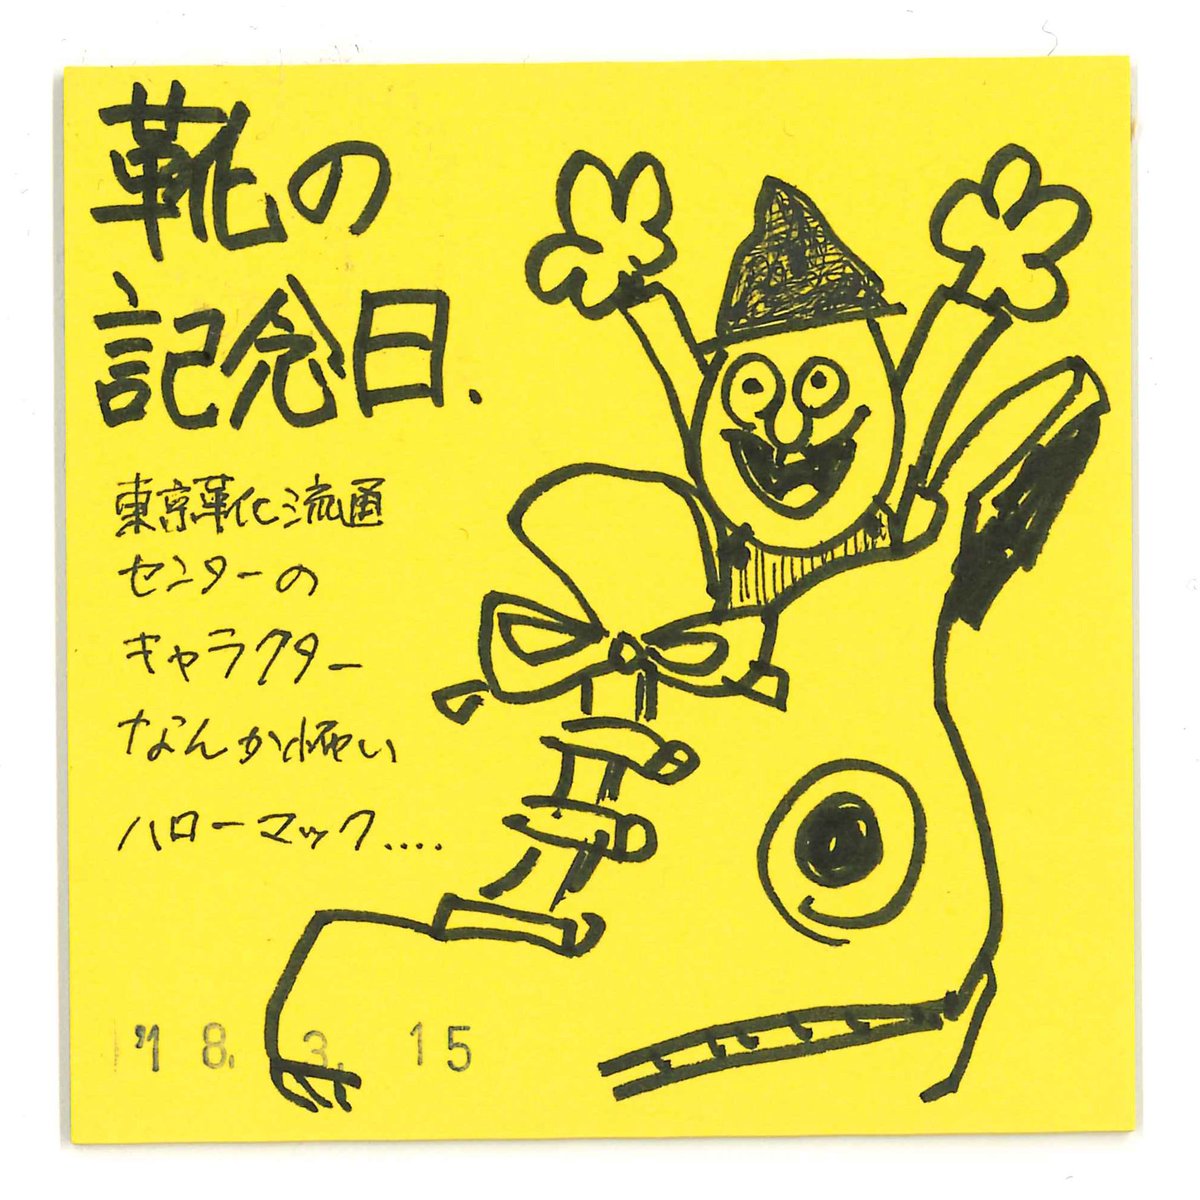 靴の
記念日.
東京靴流通
センターの
キャラクター
なんか怖い
ハローマック....
'18. 3. 15